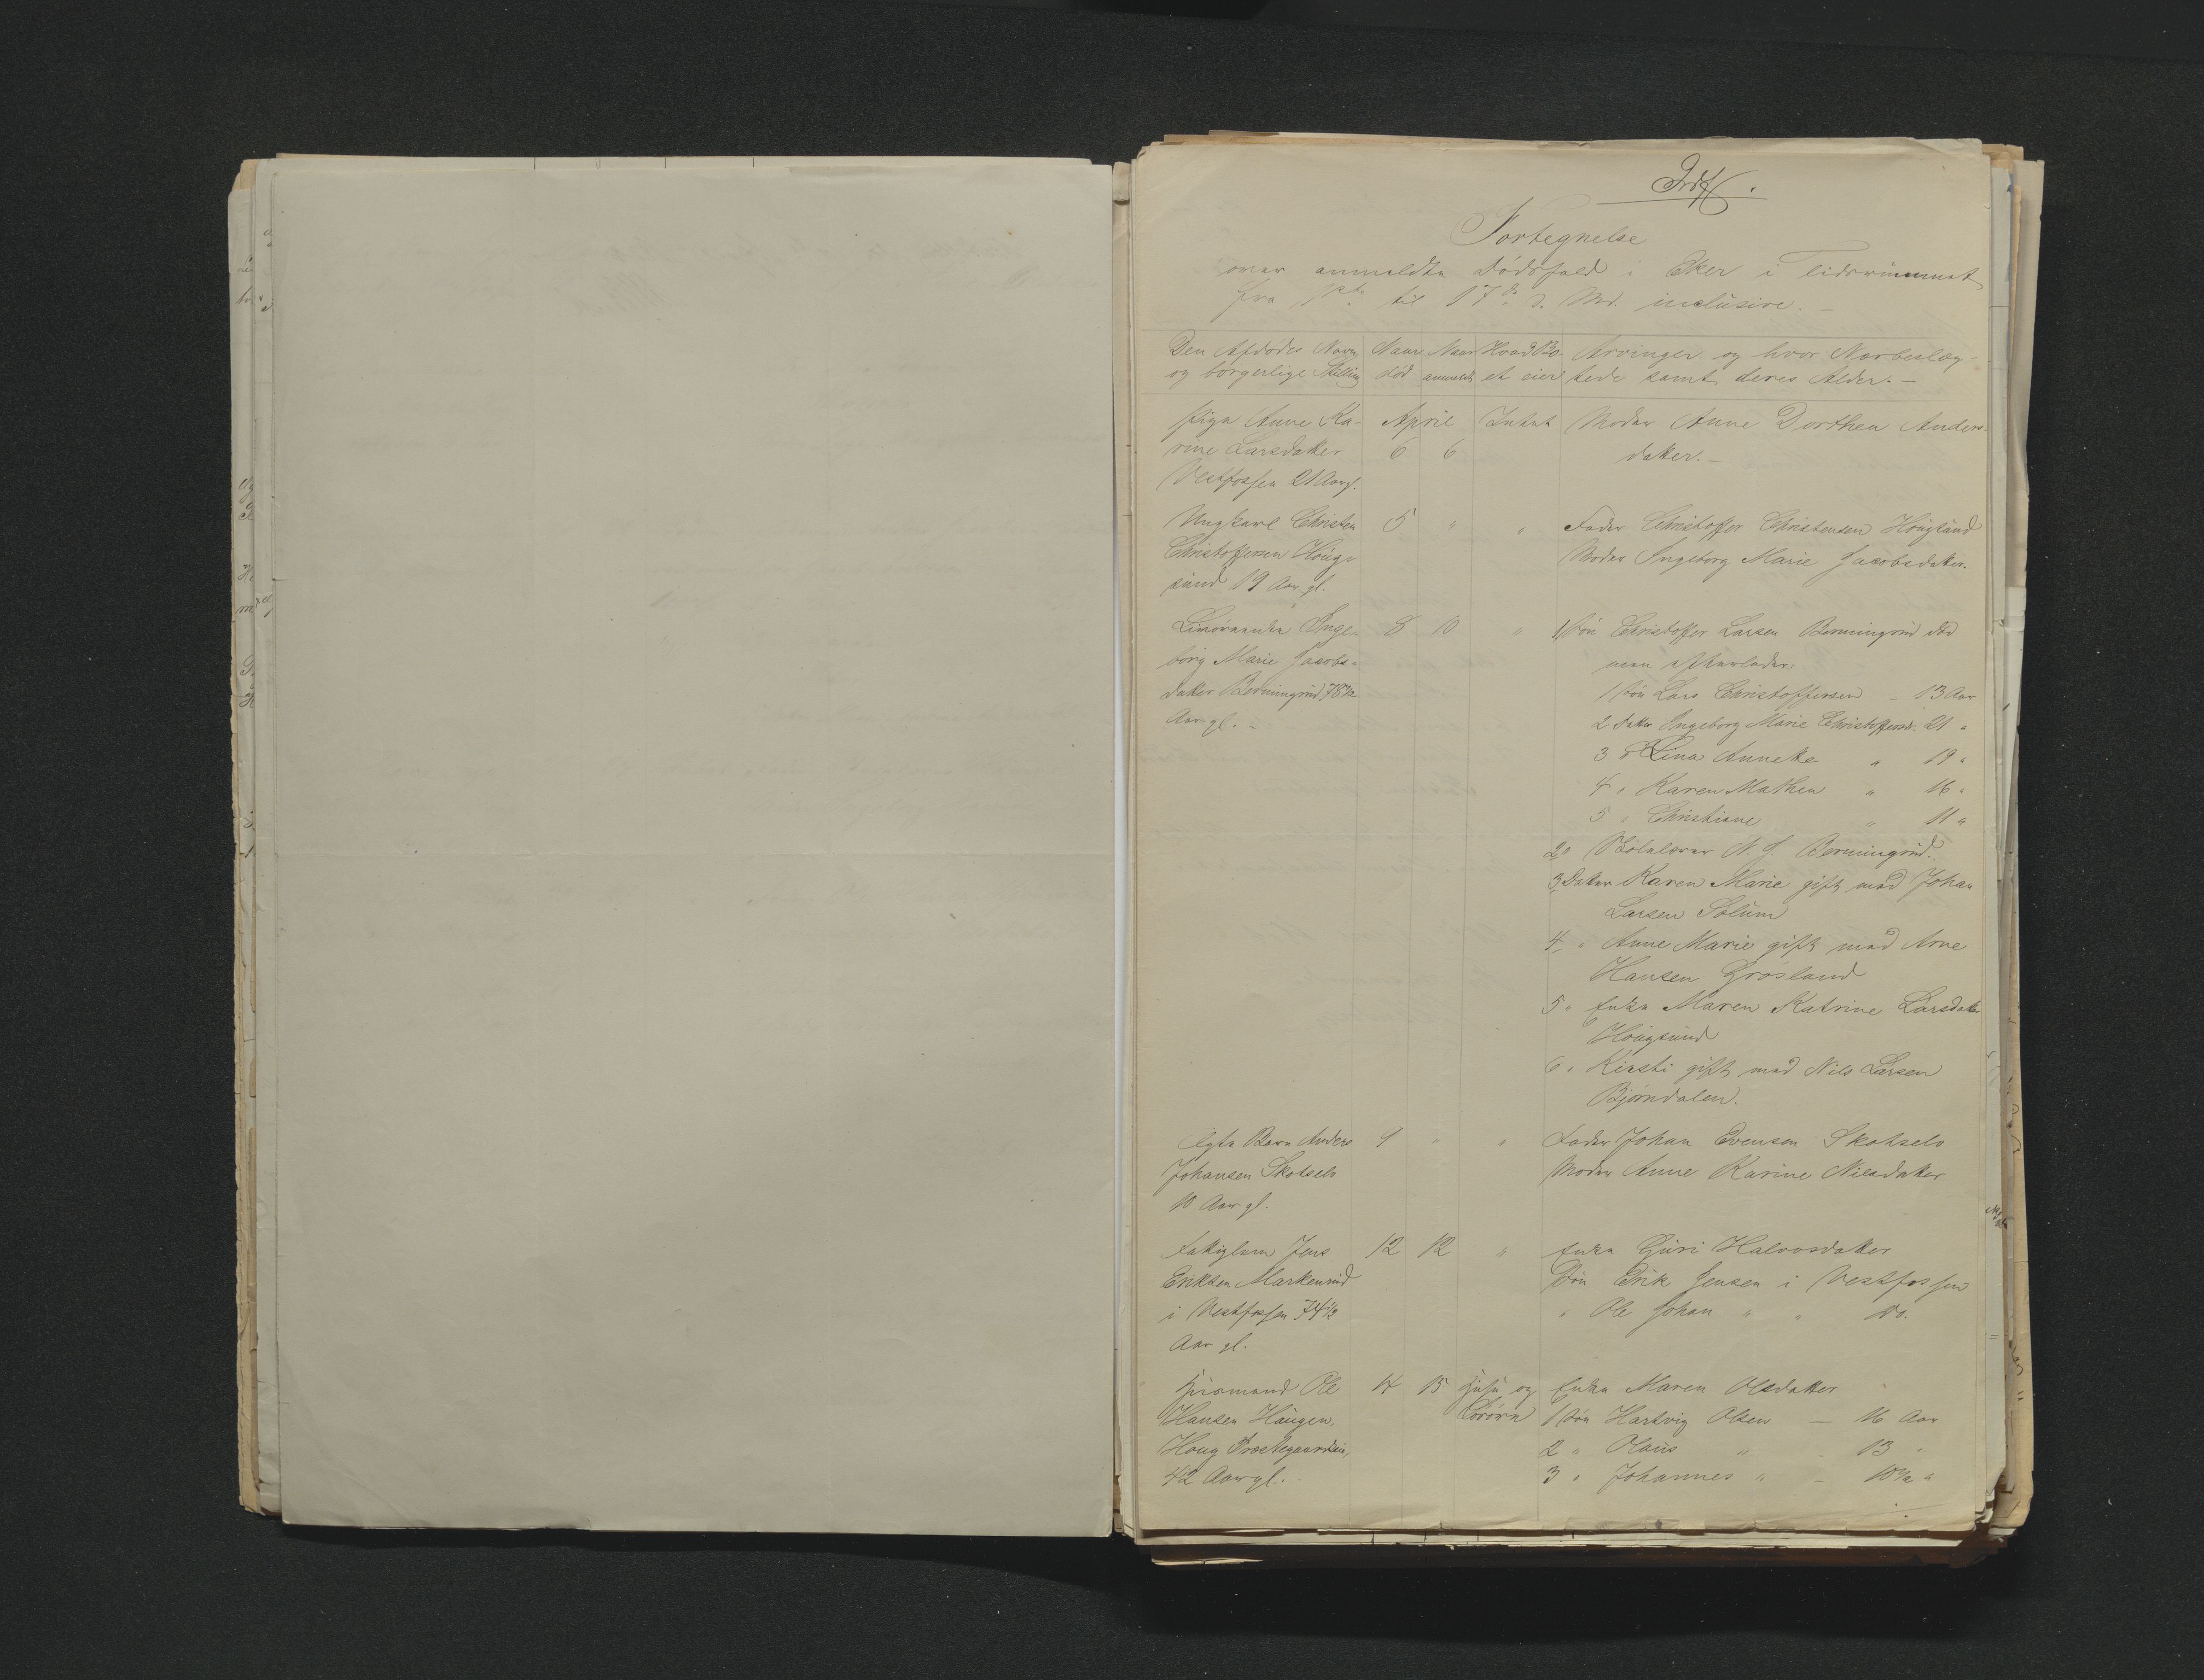 Indf.
Fortegnelse
over anmeldte Dødsfald i Eker i Tidsrummet
fra 1ste til 17de d. Md. inclusive.
Den Afdødes Navn
og borgerlige Stilling
Naar
død
Naar
anmeldt
Hvad Bo-
et eier
Arvinger og hvor Nærbeslæg-
tede samt deres Alder.
Pige Anne Ka-
rine Larsdatter
Vestfossen 21 Aar gl.
April
6 6
Intet
Moder Anne Dorthea Anders-
datter.
Ungkarl Christen
Christoffersen Houg-
sund 19 Aar gl.
5 " "
Fader Christoffer Christensen Hougsund
Moder Ingeborg Marie Jacobsdatter.
Inge-
borg Marie Jacobs-
datter Bermingrud 78½
Aar gl.
8 10 "
1, Søn Christoffer Larsen Bermingrud død
men efterlader:
1 Søn Lars Christoffersen – 13 Aar
2 Datter Ingeborg Marie Christoffersd. 21 "
3 " Lina Annette " 19 "
4 " Karen Mathea " 16 "
5 " Christiane " 11 "
2, N. J. Bermingrud.
3, Datter Karen Marie gift med Johan
Larsen Solum
4, " Anne Marie gift med Arne
Hansen Grøsland
5 " Enke Maren Katrine Larsdatter
Hougsund
6 " Kirsti gift med Nils Larsen
Bjørndalen.
Ægte Barn Anders
Johansen Skotselv
10 Aar gl.
9 " "
Fader Johan Evensen Skotselv
Moder Anne Karine Nilsdatter
Fattiglem Jens
Eriksen Markerud
i Vestfossen 74½
Aar gl.
12 12 "
Enke Guri Halvorsdatter
Søn Erik Jensen i Vestfossen
" Ole Johan " " do.
Husmand Ole
Hansen Haugen,
Houg Præstegaardseie,
42 Aar gl.
14 15
Huse og
Løsøre
Enke Maren Olsdatter
1 Søn Hartvig Olsen – 16 Aar
2 " Olaus " – 13 "
3 " Johannes " – 10½ "